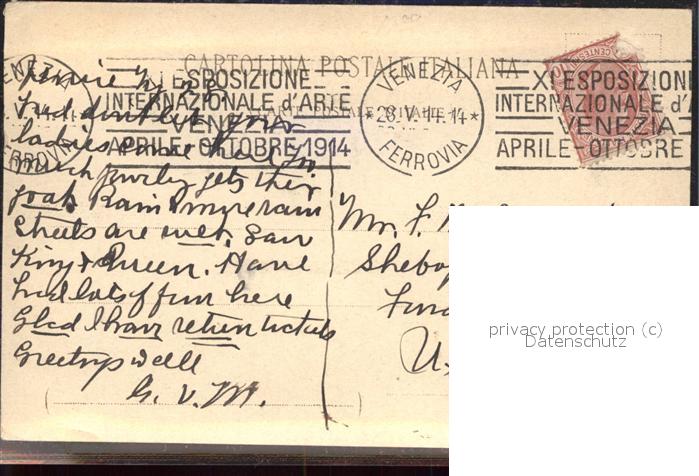 CARTOLINA POSTALE ITALIANA
XI ESPOSIZIONE
INTERNAZIONALE d'ARTE
VENEZIA
APRILE-OTTOBRE-1914
VENEZIA
* 28·V·14·14 *
FERROVIA
XI ESPOSIZION
INTERNAZIONALE d'
VENEZIA
APRILE-OTTOBRE
VENEZIA
FERROVIA
CENTESIMI
Fred don't let
ladies
much jewelry gets their
goats Rain & more rain
Streets are wet. Saw
King & Queen. Have
had lots of fun here
Glad I have return tickets
Greetings well
G. V. M.
Mr. F.
Shebo
U.
privacy protection (c)
Datenschutz